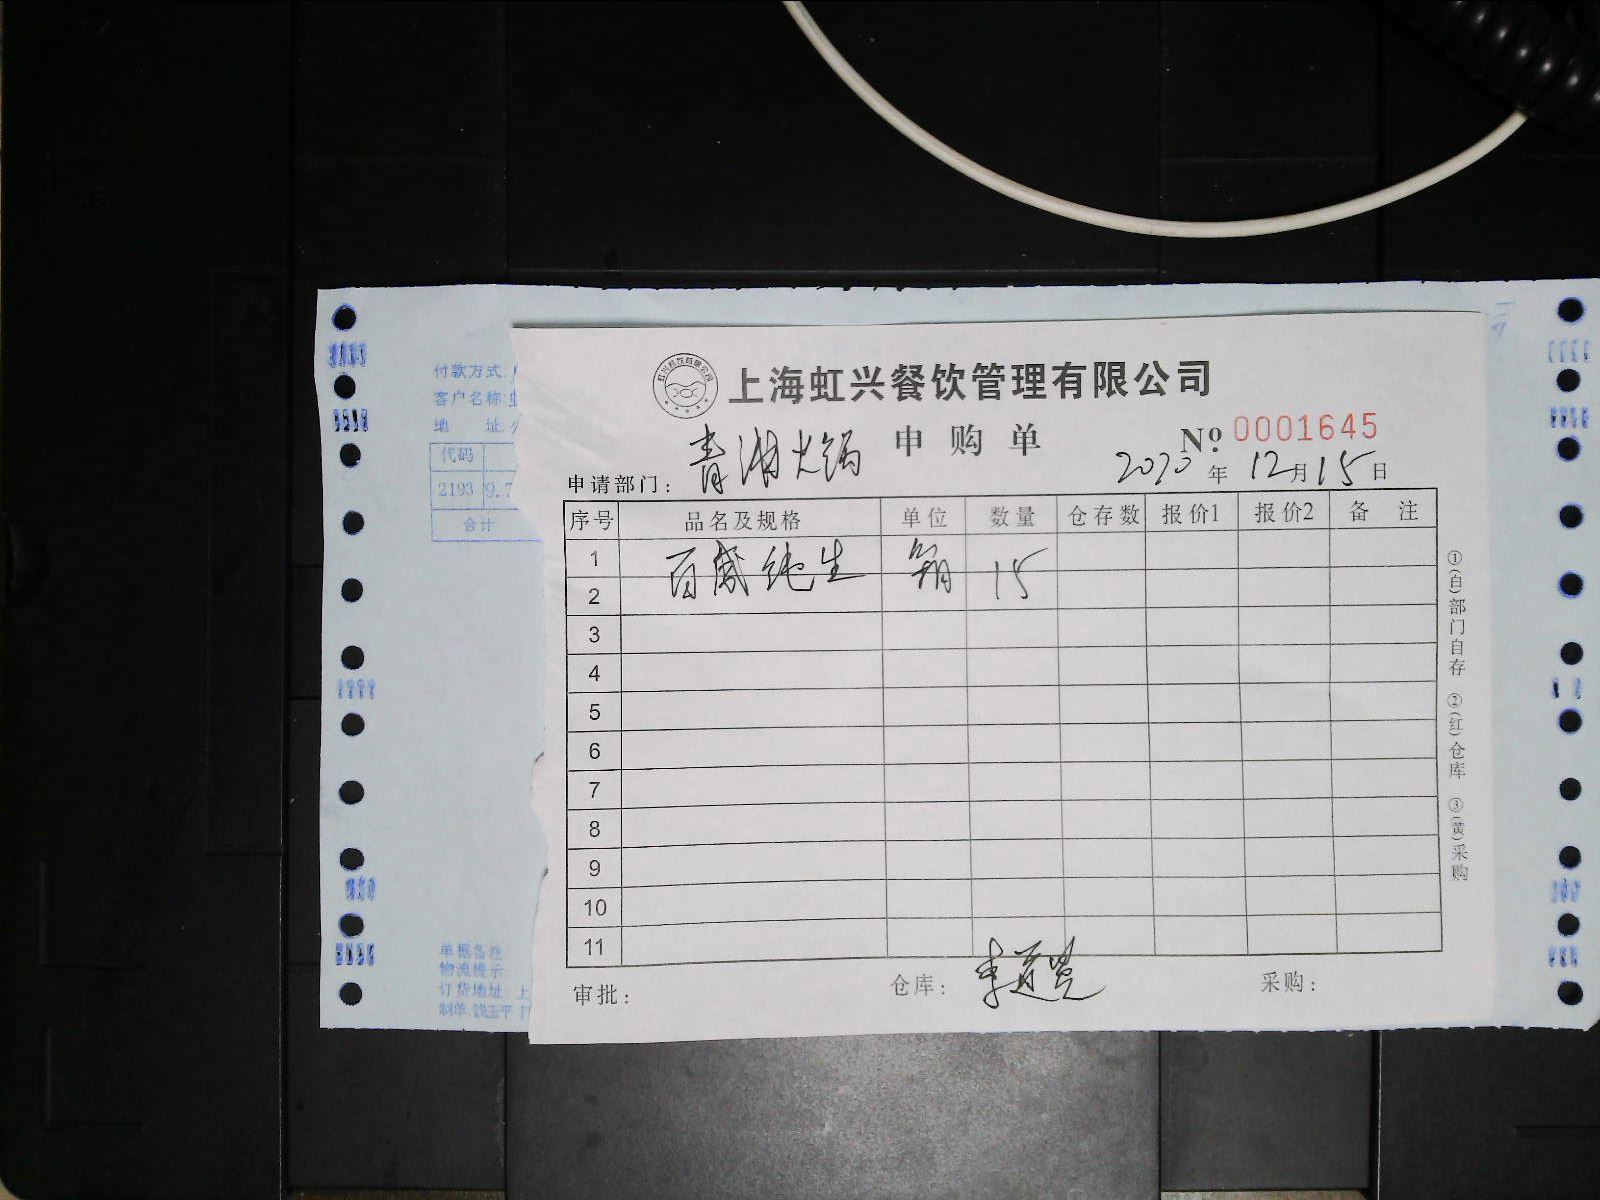 上海虹兴餐饮管理有限公司
申购单
№ 0001645
申请部门：青浦火锅
2020年12月15日
序号 品名及规格 单位 数量 仓存数 报价1 报价2 备注
1 百威纯生 箱 15
2
3
4
5
6
7
8
9
10
11
审批：
仓库：
采购：
①(白)部门自存 ②(红)仓库 ③(黄)采购
付款方式
客户名称:
地 址
代码
2193 9.7
合计
单据备注
物流提示:
订货地址: 上
制单:钱玉平